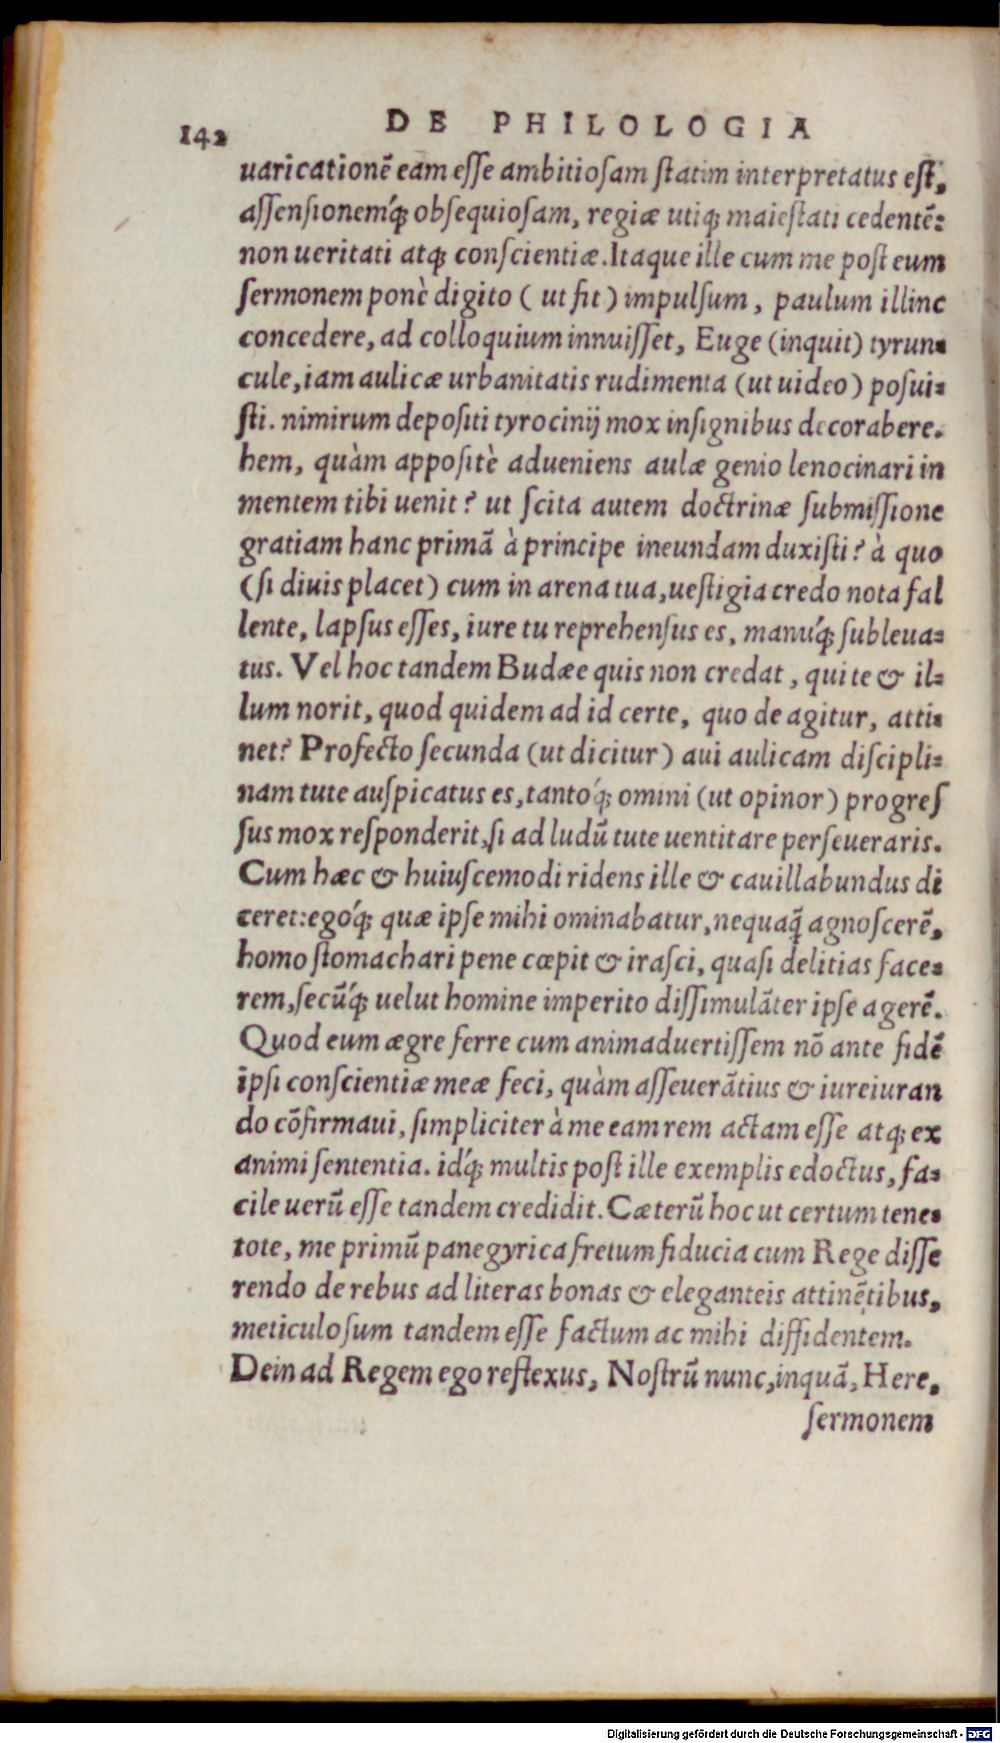 142 DE PHILOLOGIA
uaricationē eam eſſe ambitioſam ſtatim interpretatus eſt,
aſſenſionemq́; obſequioſam, regiæ utiq; maieſtati cedentē:
non ueritati atq; conſcientiæ. Itaque ille cum me poſt eum
ſermonem ponè digito ( ut fit ) impulſum, paulum illinc
concedere, ad colloquium innuiſſet, Euge (inquit) tyrun-
cule, iam aulicæ urbanitatis rudimenta (ut uideo) poſui-
ſti. nimirum depoſiti tyrocinij mox inſignibus decorabere.
hem, quàm appoſitè adueniens aulæ genio lenocinari in
mentem tibi uenit? ut ſcita autem doctrinæ ſubmiſſione
gratiam hanc primā à principe ineundam duxiſti? à quo
(ſi diuis placet) cum in arena tua, ueſtigia credo nota fal
lente, lapſus eſſes, iure tu reprehenſus es, manuq́; ſubleua-
tus. Vel hoc tandem Budæe quis non credat, qui te & il-
lum norit, quod quidem ad id certe, quo de agitur, atti-
net? Profecto ſecunda (ut dicitur) aui aulicam diſcipli-
nam tute auſpicatus es, tantoq́; omini (ut opinor) progreſ
ſus mox reſponderit, ſi ad ludū tute uentitare perſeueraris.
Cum hæc & huiuſcemodi ridens ille & cauillabundus di
ceret: egoq́; quæ ipſe mihi ominabatur, nequaq̃ agnoſcerē,
homo ſtomachari pene cœpit & iraſci, quaſi delitias face-
rem, ſecūq́; uelut homine imperito diſſimulāter ipſe agerē.
Quod eum ægre ferre cum animaduertiſſem nō ante fidē
ipſi conſcientiæ meæ feci, quàm aſſeuerātius & iureiuran
do cōfirmaui, ſimpliciter à me eam rem actam eſſe atq; ex
animi ſententia. idq́; multis poſt ille exemplis edoctus, fa-
cile uerū eſſe tandem credidit. Cæterū hoc ut certum tene-
tote, me primū panegyrica fretum fiducia cum Rege diſſe
rendo de rebus ad literas bonas & eleganteis attinētibus,
meticuloſum tandem eſſe factum ac mihi diffidentem.
Dein ad Regem ego reflexus, Noſtrū nunc, inquā, Here,
ſermonem
Digitalisierung gefördert durch die Deutsche Forschungsgemeinschaft - DFG